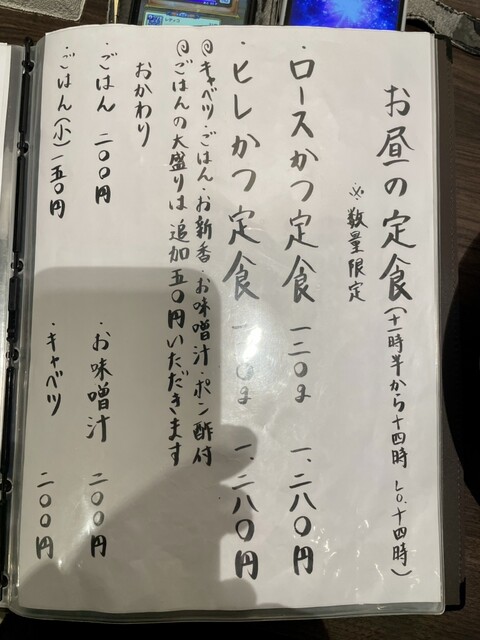 お昼の定食(十一時半から十四時 L.O.十四時)
※数量限定
・ロースかつ定食 一二〇g 一、二八〇円
・ヒレかつ定食 一一〇g 一、二八〇円
◎キャベツ・ごはん・お新香・お味噌汁・ポン酢付
◎ごはんの大盛りは追加五〇円いただきます
おかわり
・ごはん 二〇〇円
・お味噌汁 二〇〇円
・ごはん(小)一五〇円
・キャベツ 二〇〇円